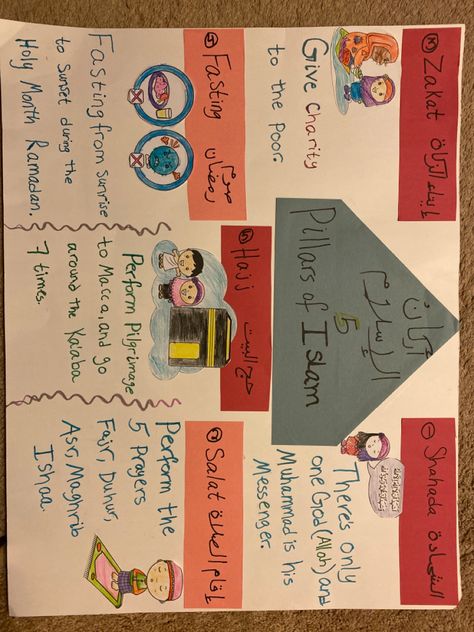 أركان
الإسلام
5
Pillars of Islam
1 Shahada الشهادة
There's only
one God (Allah) and
Muhammad is his
Messenger.
2 Salat إقام الصلاة
Perform the
5 Prayers
Fajr, Duhur,
Asr, Maghrib
Ishaa
3 Zakat إيتاء الزكاة
Give Charity
to the poor.
4 Fasting صوم رمضان
Fasting from Sunrise
to Sunset during the
Holy Month Ramadan.
5 Hajj حج البيت
Perform Pilgrimage
to Macca, and go
around the Kaaba
7 times.